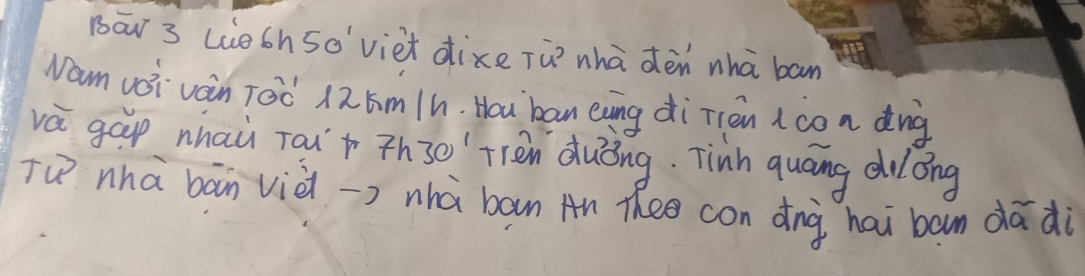 Bài 3 Lúc 6h50' việt đi xe Từ nhà đến nhà bạn
Nam với vận Tốc 12km/h. Hai bạn cùng đi Trên 1 con đng
và gặp nhau Tại 7h30' Trên đường. Tính quãng đường
Từ nhà bạn việt → nhà bạn An Theo con đng hai bạn đã đi